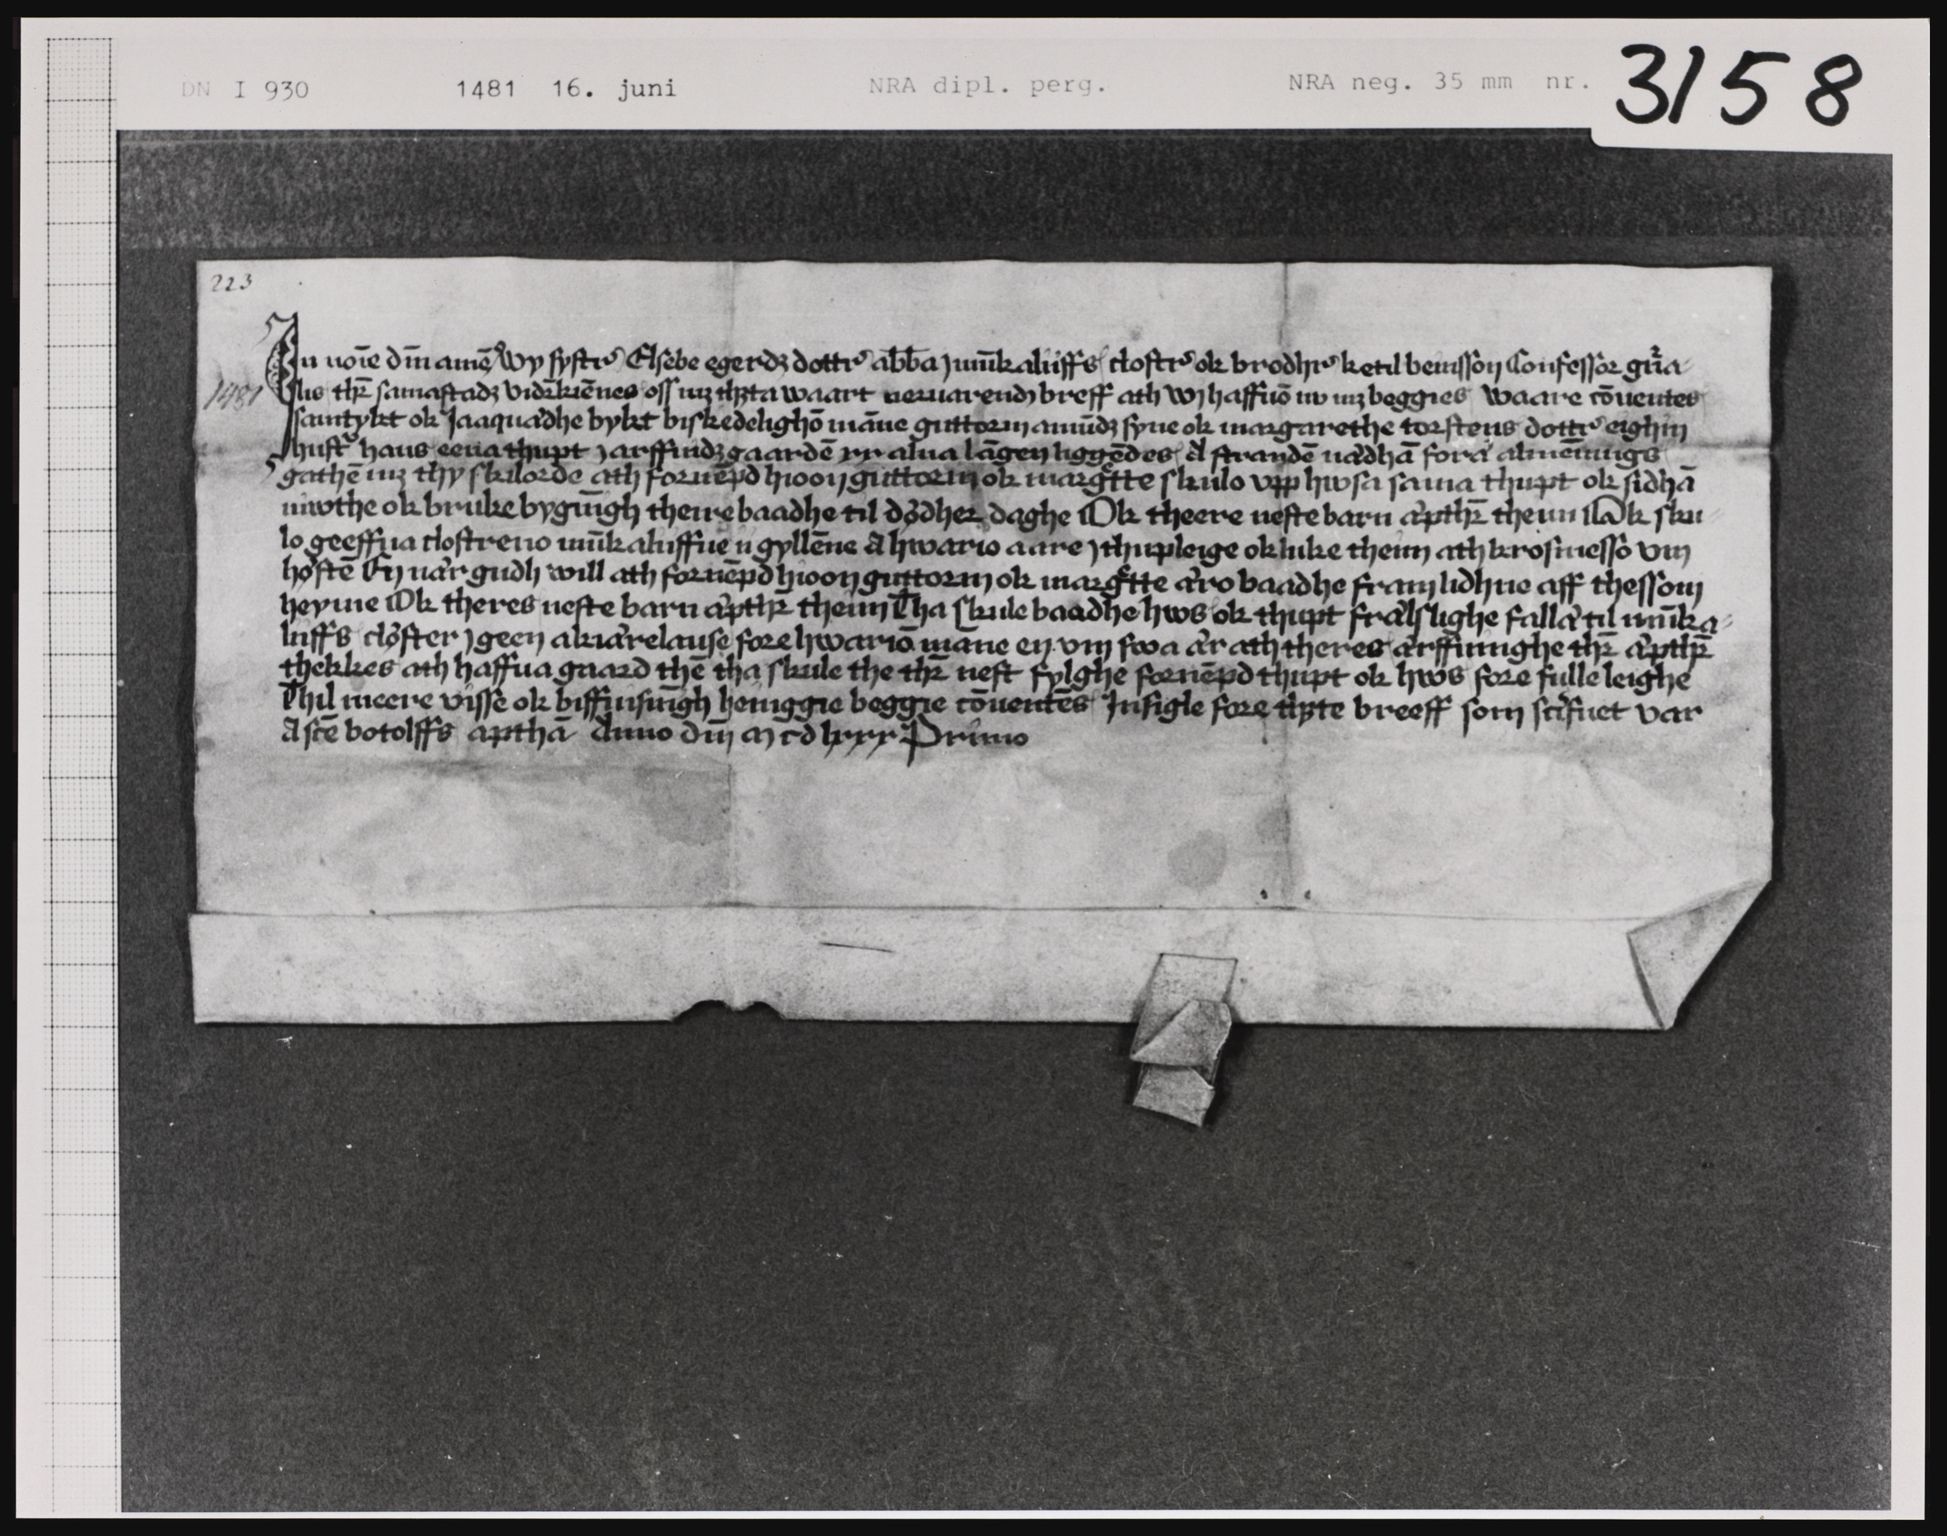 DN I 930 1481 16. juni NRA dipl. perg. NRA neg. 35 mm nr. 3158
223
1481
In noīe dnī amē Wy syster Elsebe egerdz dotter abb̄a j mūkaliiffs closter ok brodher ketil benisson Confessor gn̄ra-
lis thr̄ samastadz vidr̄kiēnes oss mz thz̄ta waart neruarendj breff ath wj haffuō nv mz beggies waare cōuentes
samtykt ok Jaaquædhe bykt biskedelighō māne guttorm amūdz syne ok margarethe torstens dotter eighin
husfr̄ hans eena thupt j arffuidz gaardē xx alna lāgen liggēdes A strandē nædhā fora almēnings
gathē mz thy skilorde ath fornēpd hioon guttorm ok margrette skulo vpp hwsa sama thupt ok sidhā
niwthe ok bruke bygnīgh theire baadhe til dødher daghe Ok theere neste barn æpthr̄ thenn Ok sku
lo geeffua clostreno mūkaliiffue ii gyllēne A hwario aare j thupleige ok luke thenn ath krosmesso vm
høstē En nær gudh will ath fornēpd hioon guttorm ok margrette æro baadhe fram lidhne aff thessom
heyme Ok theres neste barn æpthr̄ thenn Tha skule baadhe hws ok thupt frælslighe falla til mūka-
liiffs closter j geen akiærelause fore hwariō māne en vm swa ær ath theres ærffuinghe thr̄ æpthr̄
thekkes ath haffua gaard thē tha skule the thr̄ nest fylghe fornēpd thupt ok hws fore fulle leighe
Thil meere visse ok biffinsnīgh henggie beggie cōuentēs Insigle fore thz̄te breeff som scrifuet var
A scē botolffs apthā Anno dnī m cd lxxx Primo